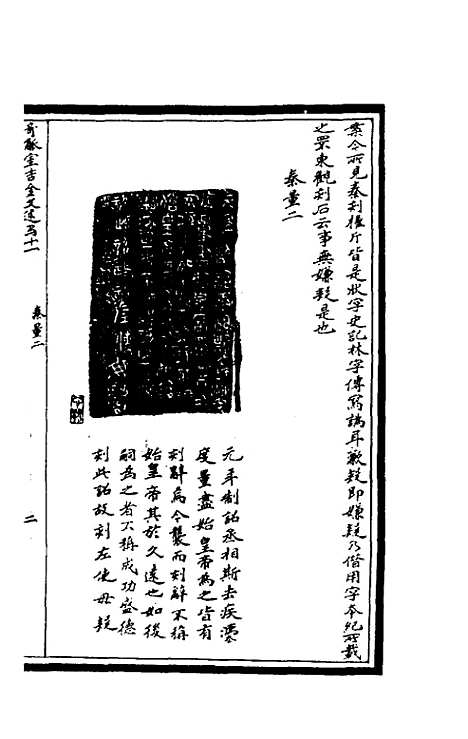 案今所見秦刻權斤皆是狀字史記林字傳寫譌耳歉疑即嫌疑乃借用字本紀所載
之罘東觀刻石云事無嫌疑是也
秦量二
元年制詔丞相斯去疾灋
度量盡始皇帝為之皆有
刻辭焉今襲而刻辭不稱
始皇帝其於久遠也如後
嗣為之者不稱成功盛德
刻此詔故刻左使毋疑
奇觚室吉金文述卷十一
秦量二
二